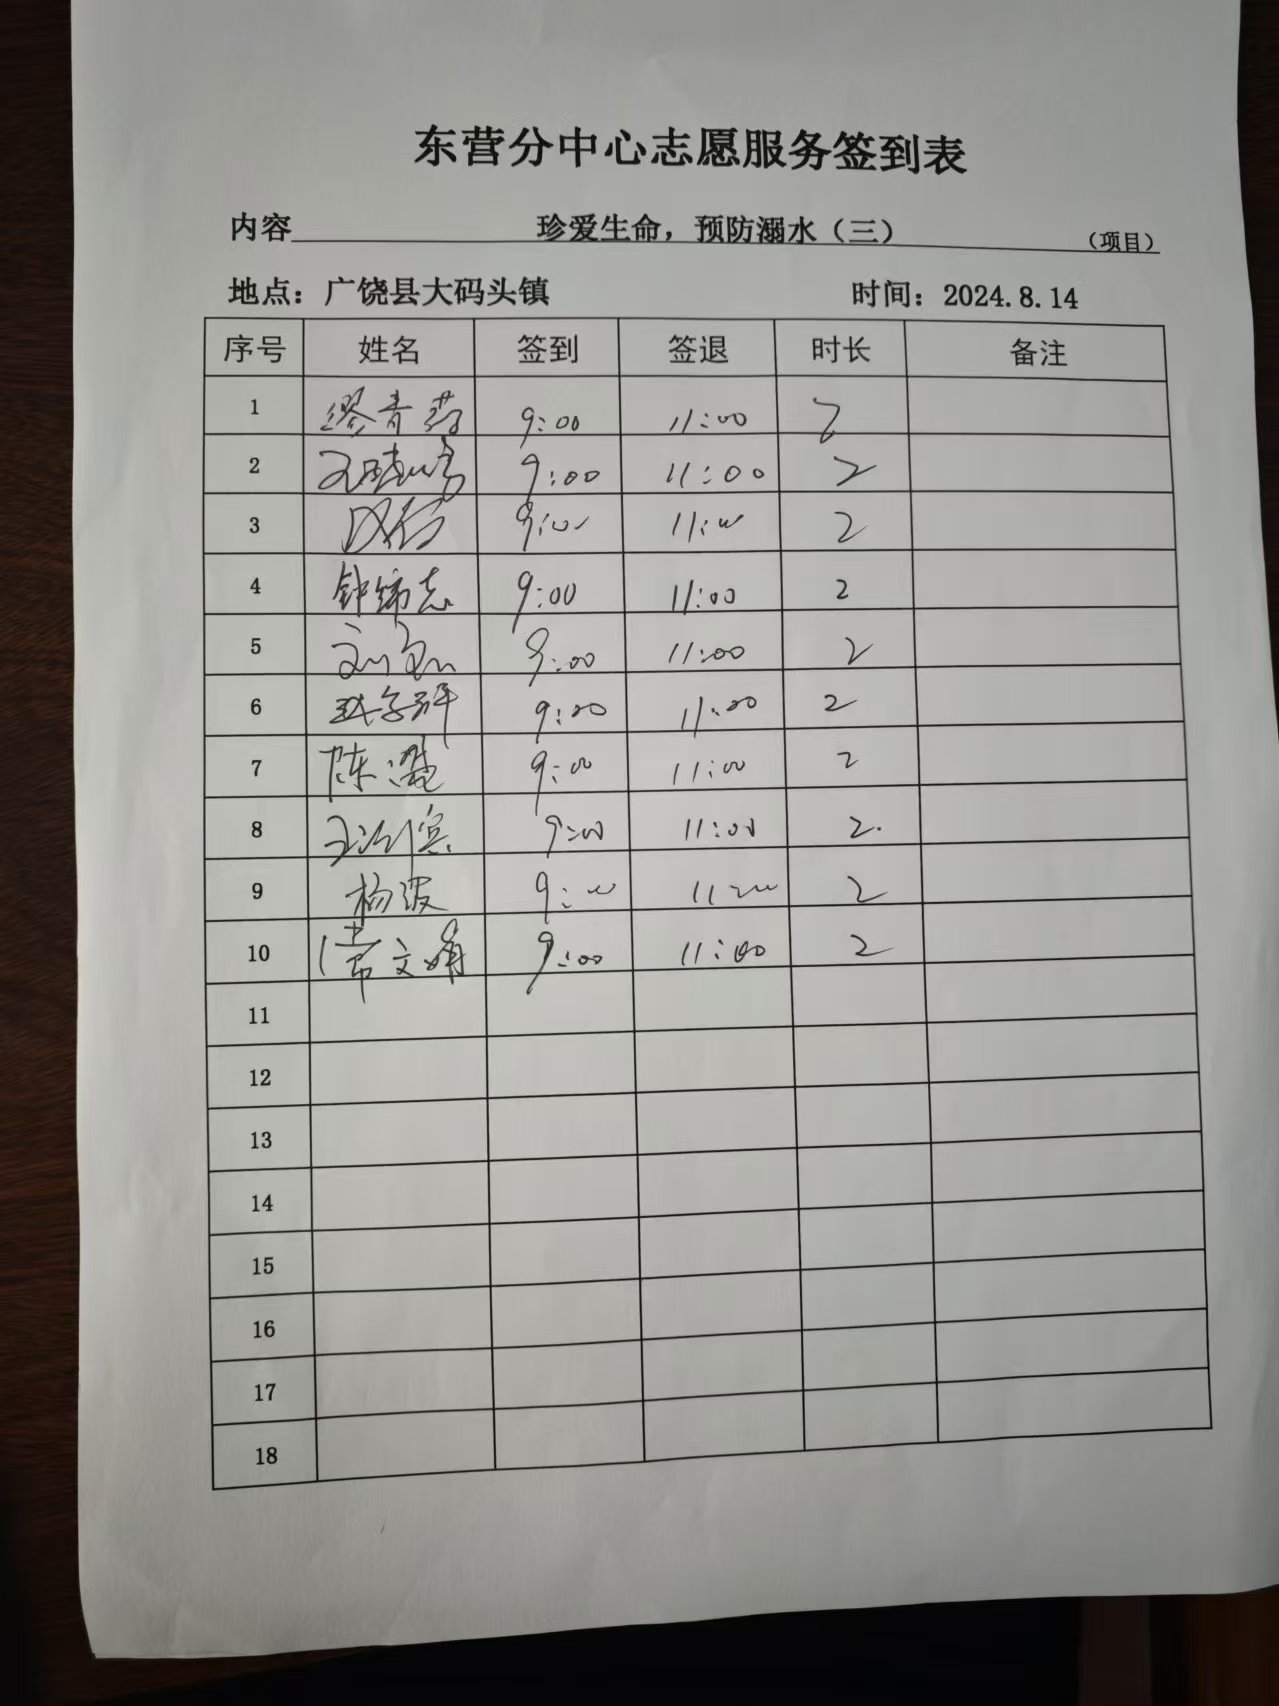 东营分中心志愿服务签到表
内容 珍爱生命，预防溺水（三） （项目）
地点：广饶县大码头镇 时间：2024.8.14
序号 姓名 签到 签退 时长 备注
1 9:00 11:00 2
2 9:00 11:00 2
3 9:00 11:00 2
4 钟绵志 9:00 11:00 2
5 9:00 11:00 2
6 9:00 11:00 2
7 陈 9:00 11:00 2
8 9:00 11:00 2.
9 杨波 9:00 11:00 2
10 常文娟 9:00 11:00 2
11
12
13
14
15
16
17
18